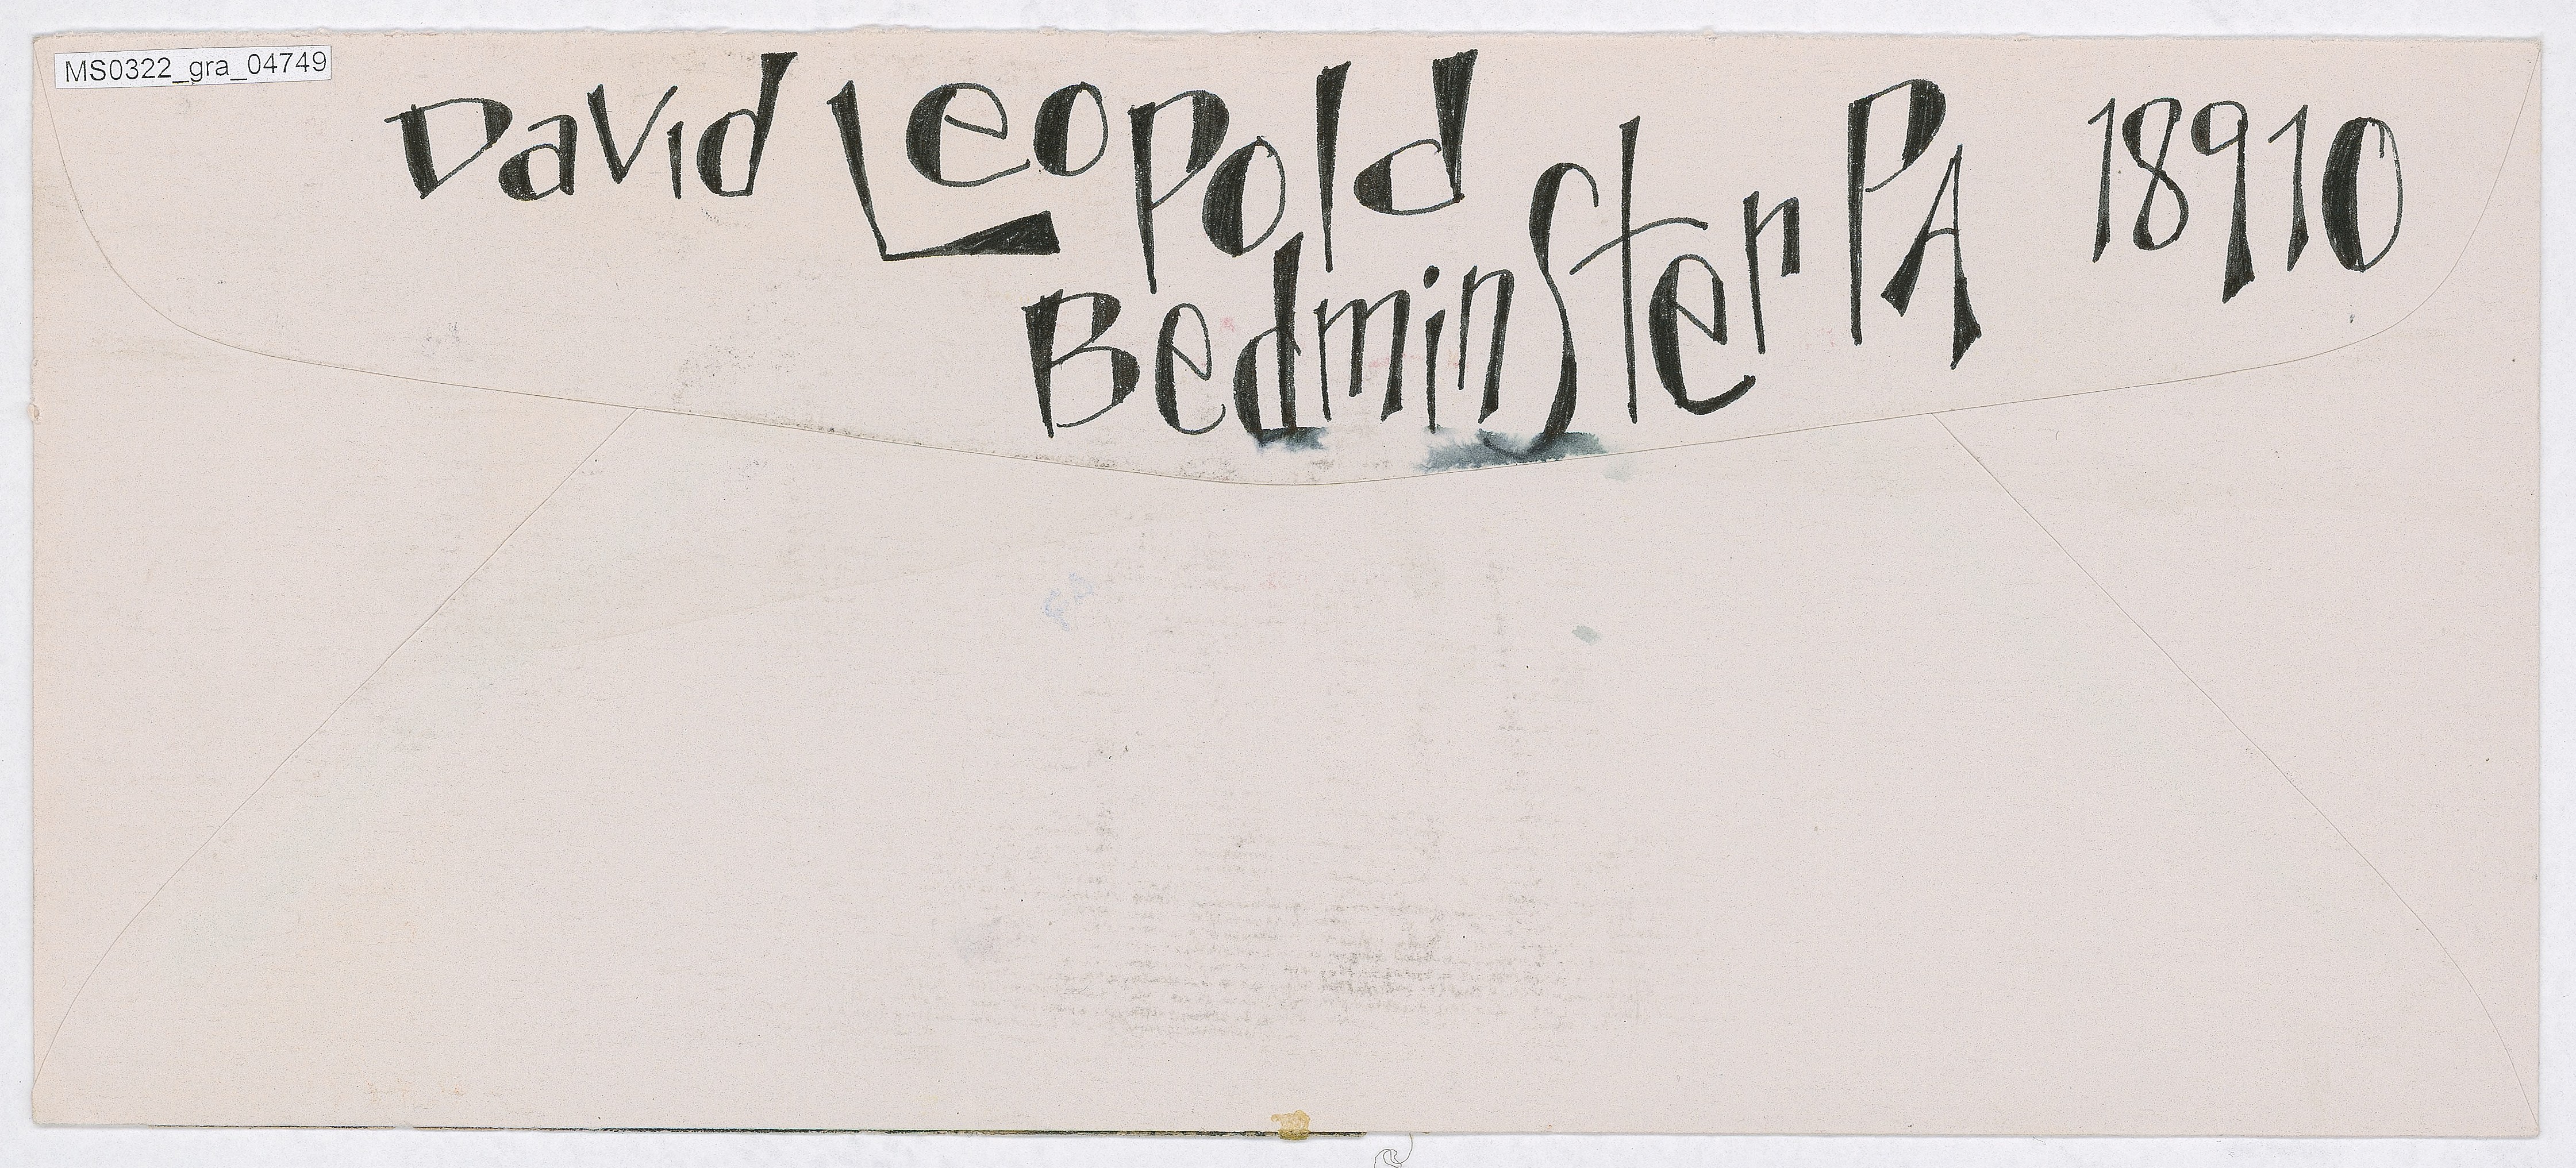 MS0322_gra_04749
David Leopold
Bedminster PA 18910